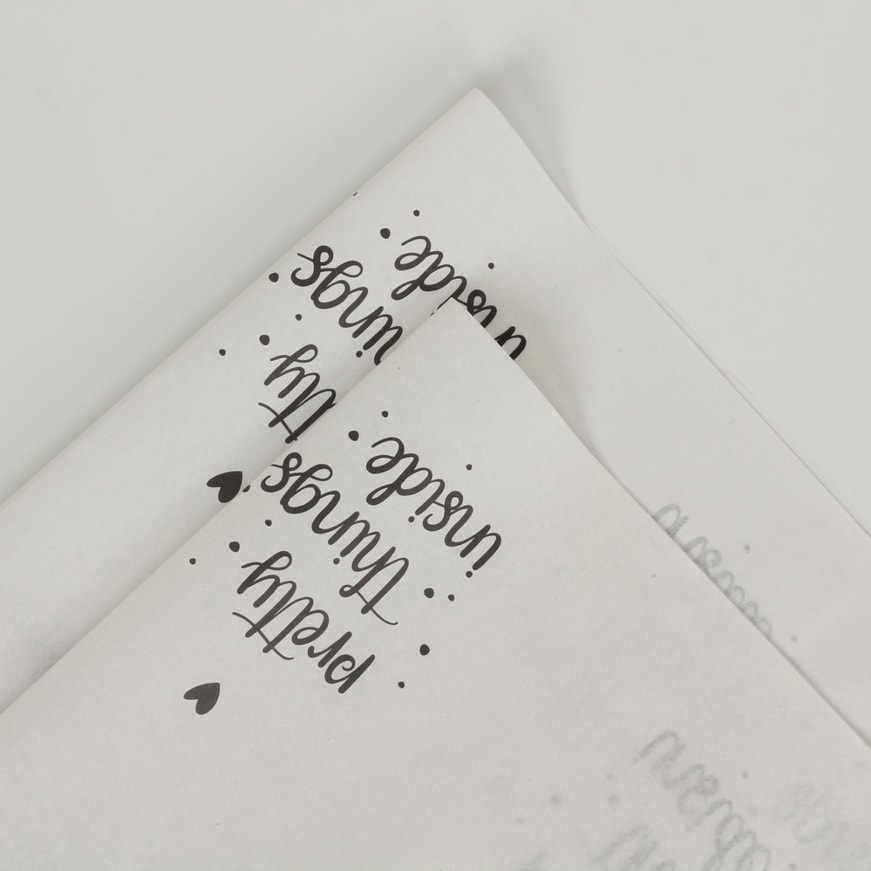 pretty
things
inside
tty
ings
inside